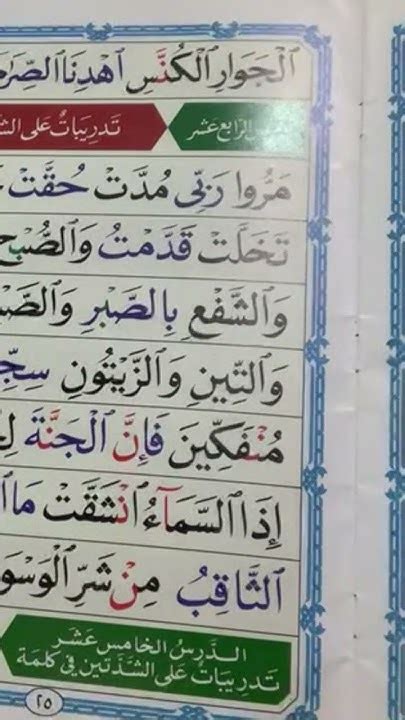 ٱلْجَوَارِ ٱلْكُنَّسِ ٱهْدِنَا ٱلصِّرَٰ
الرابع عشر تَدرِيبَاتٌ عَلَى الشّ
مَرُّوا رَبِّى مُدَّتْ حُقَّتْ
تَخَلَّتْ قَدَّمْتُ وَٱلصُّبْحِ
وَٱلشَّفْعِ بِٱلصَّبْرِ وَٱلصَّ
وَٱلتِّينِ وَٱلزَّيْتُونِ سِجِّ
مُنْفَكِّينَ فَإِنَّ ٱلْجَنَّةَ
إِذَا ٱلسَّمَآءُ ٱنْشَقَّتْ مَا ٱل
ٱلثَّاقِبُ مِنْ شَرِّ ٱلْوَسْوَ
الدَّرسُ الخامس عَشَر
تَدرِيبَاتٌ عَلَى الشَّدَّتَين فِى كَلِمَة
٢٥